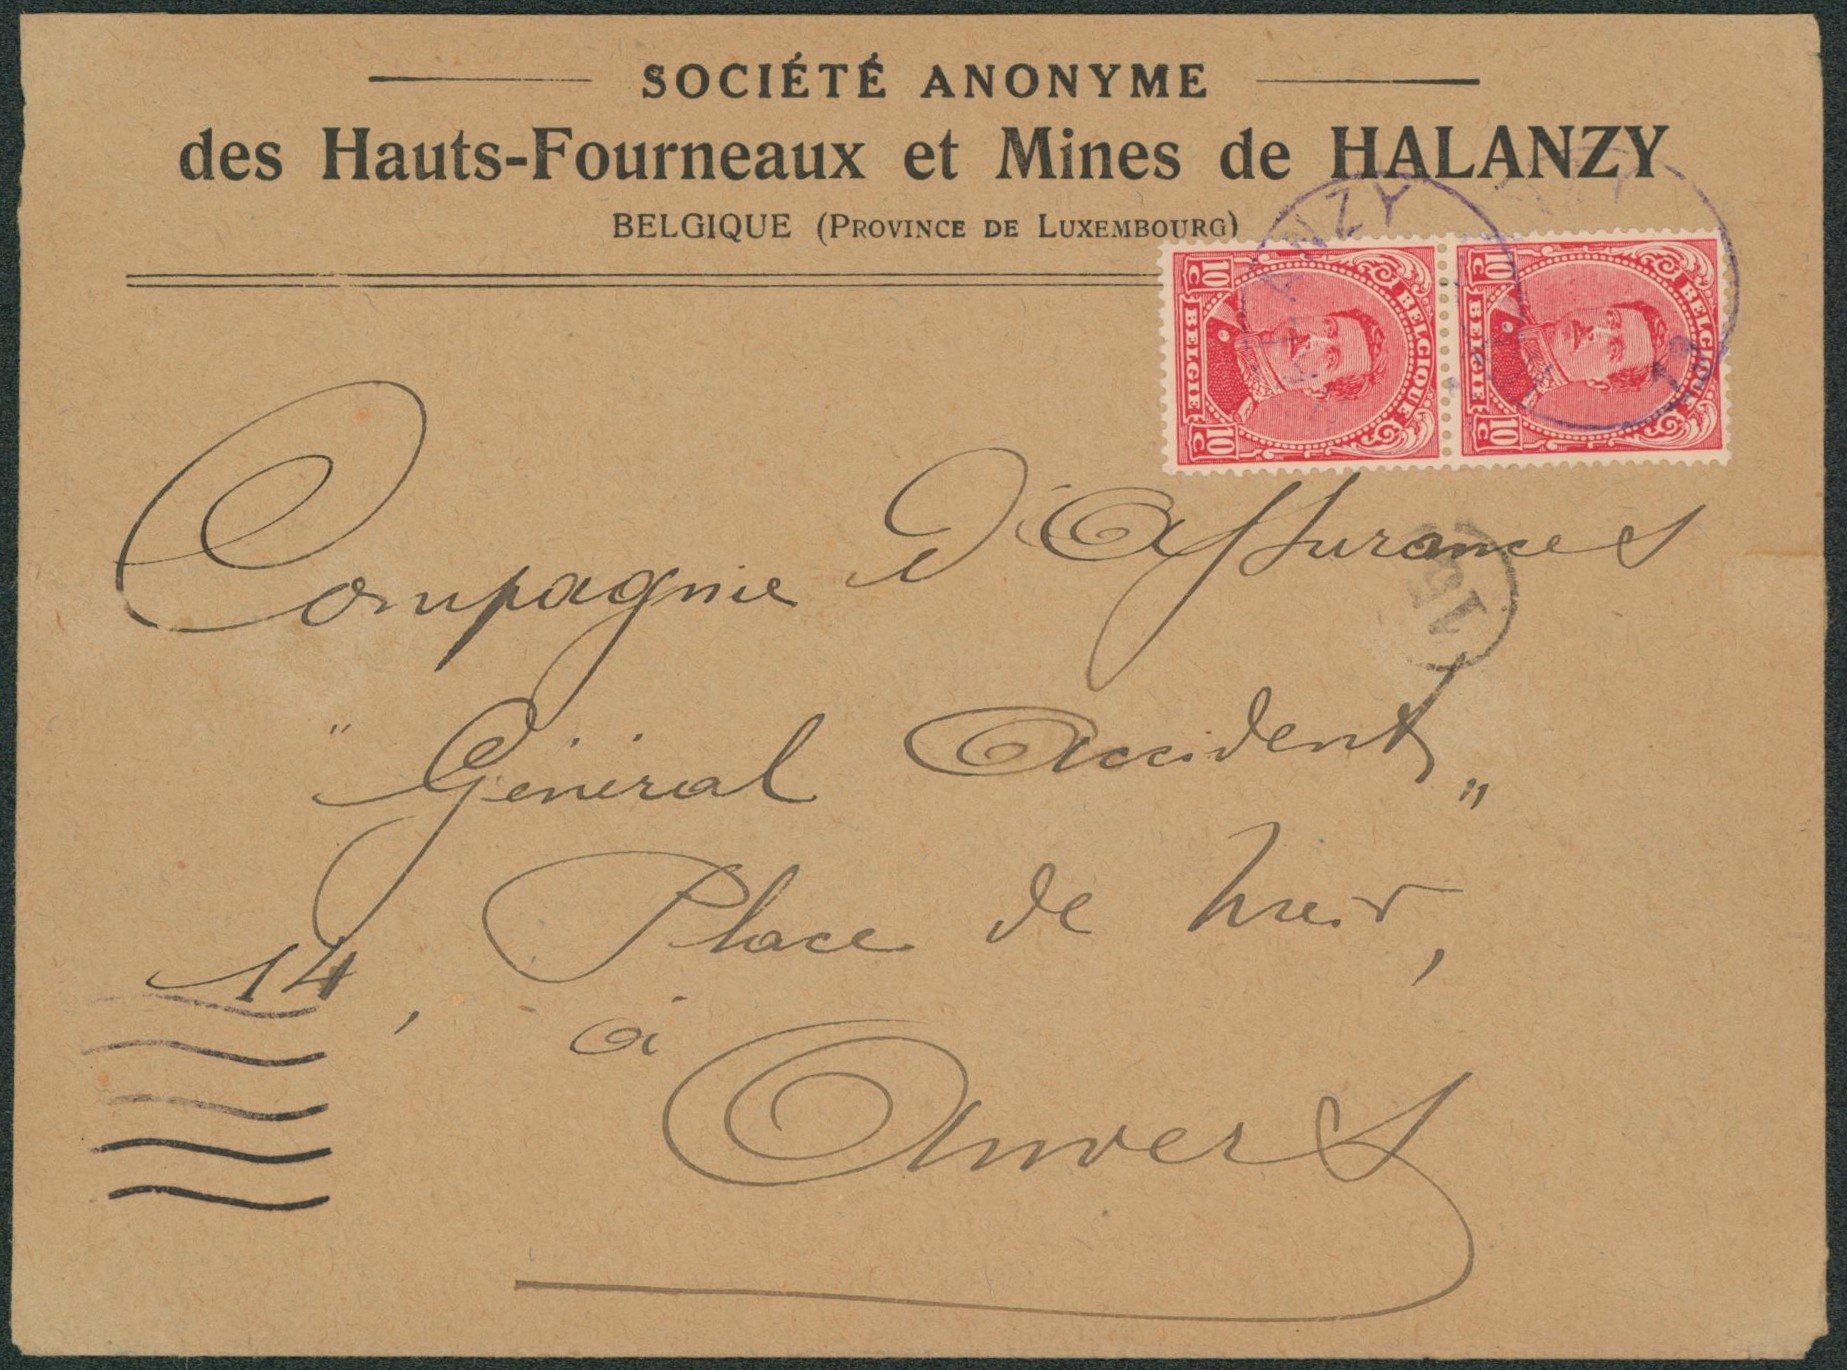 SOCIÉTÉ ANONYME
des Hauts-Fourneaux et Mines de HALANZY
BELGIQUE (PROVINCE DE LUXEMBOURG)
ANZY
10 C BELGIE 10 C BELGIQUE
10 C BELGIE 10 C BELGIQUE
Compagnie d'Assurances
"Général Accident"
14, Place de Meir,
à
Anvers